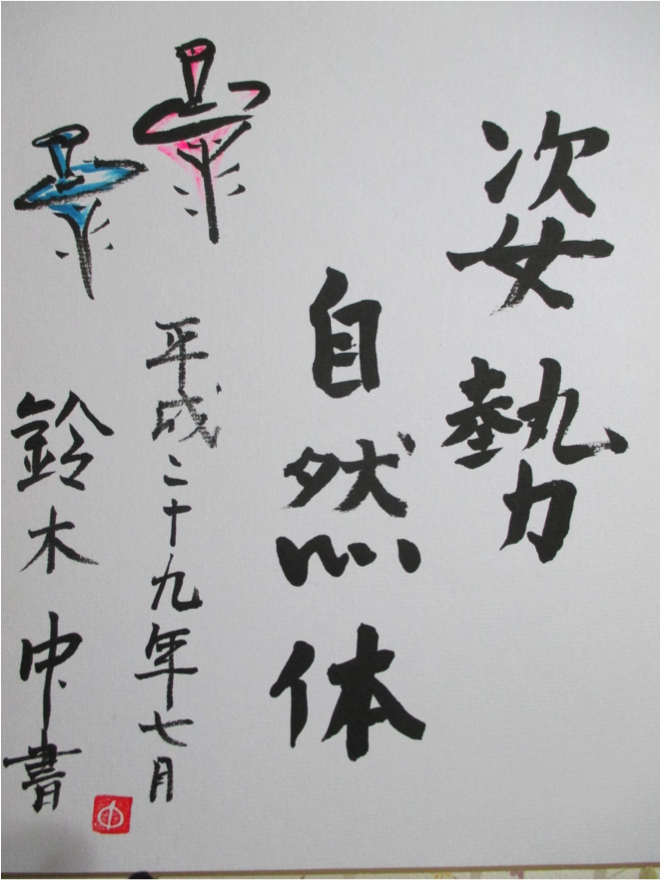 姿勢
自然体
平成二十九年七月
鈴木中書